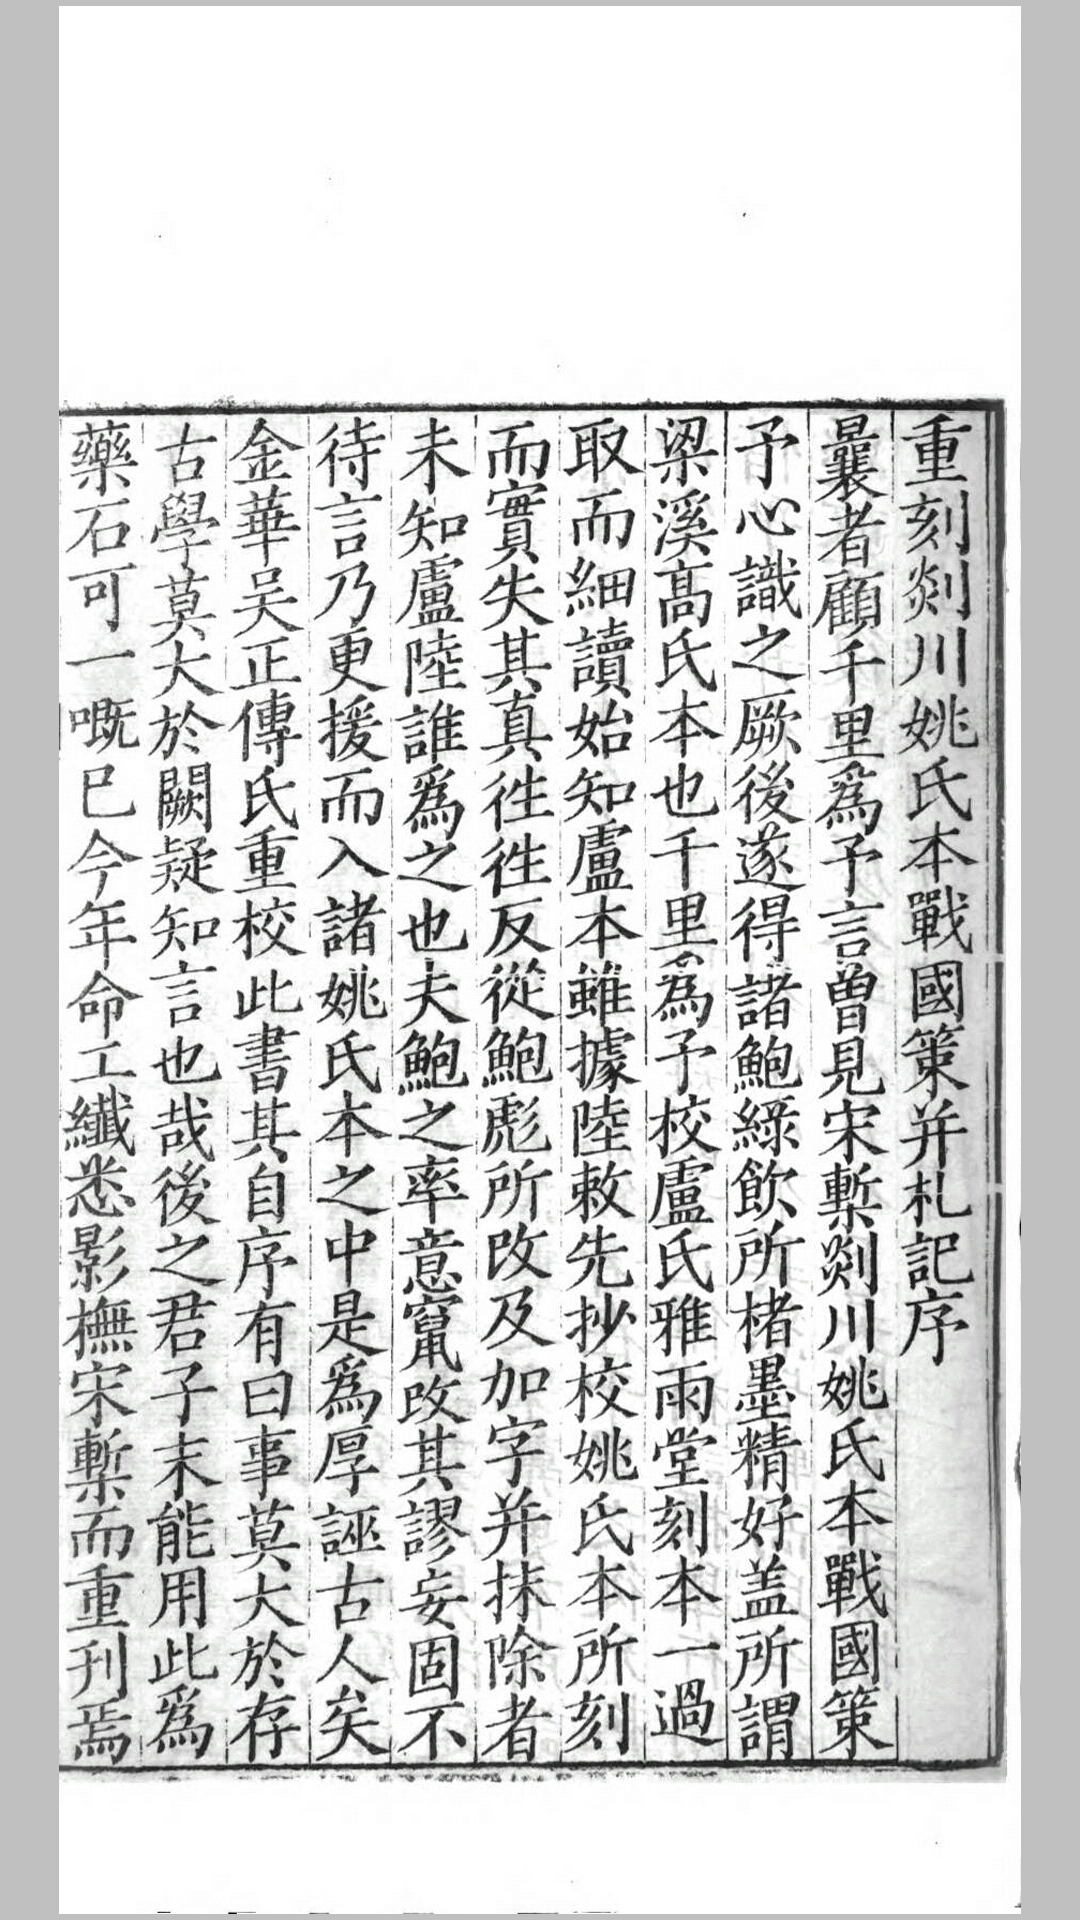 重刻剡川姚氏本戰國策并札記序
曩者顧千里爲予言曽見宋槧剡川姚氏本戰國策
予心識之厥後遂得諸鮑綠飲所楮墨精好盖所謂
梁溪髙氏本也千里爲予校盧氏雅雨堂刻本一過
取而細讀始知盧本雖據陸敕先抄校姚氏本所刻
而實失其真徃徃反從鮑彪所改及加字并抹除者
未知盧陸誰爲之也夫鮑之率意竄改其謬妄固不
待言乃更援而入諸姚氏本之中是爲厚誣古人矣
金華吴正傳氏重校此書其自序有曰事莫大於存
古學莫大於闕疑知言也哉後之君子未能用此爲
藥石可一嘅已今年命工纖悉影橅宋槧而重刊焉